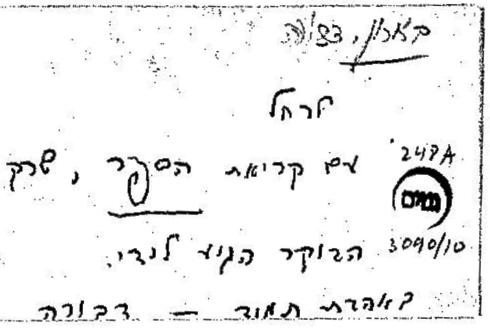 בארון,
לרחל
עם קריאת הספר, שרק
הבוקר הגיע לידי.
באהבת תמיד – דבורה
247A
3090/10